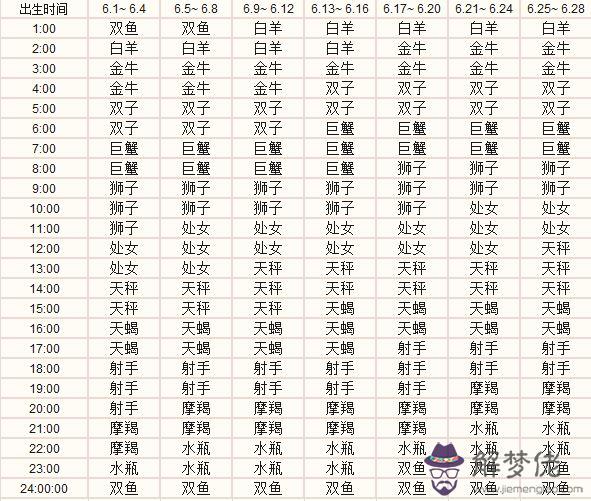 出生时间 6.1~ 6.4 6.5~ 6.8 6.9~ 6.12 6.13~ 6.16 6.17~ 6.20 6.21~ 6.24 6.25~ 6.28
1:00 双鱼 双鱼 白羊 白羊 白羊 白羊 白羊
2:00 白羊 白羊 白羊 白羊 金牛 金牛 金牛
3:00 金牛 金牛 金牛 金牛 金牛 金牛 金牛
4:00 金牛 金牛 金牛 双子 双子 双子 双子
5:00 双子 双子 双子 双子 双子 双子 双子
6:00 双子 双子 双子 巨蟹 巨蟹 巨蟹 巨蟹
7:00 巨蟹 巨蟹 巨蟹 巨蟹 巨蟹 巨蟹 巨蟹
8:00 巨蟹 巨蟹 巨蟹 巨蟹 狮子 狮子 狮子
9:00 狮子 狮子 狮子 狮子 狮子 狮子 狮子
10:00 狮子 狮子 狮子 狮子 狮子 处女 处女
11:00 狮子 处女 处女 处女 处女 处女 处女
12:00 处女 处女 处女 处女 处女 处女 天秤
13:00 处女 处女 天秤 天秤 天秤 天秤 天秤
14:00 天秤 天秤 天秤 天秤 天秤 天秤 天秤
15:00 天秤 天秤 天秤 天蝎 天蝎 天蝎 天蝎
16:00 天蝎 天蝎 天蝎 天蝎 天蝎 天蝎 天蝎
17:00 天蝎 天蝎 天蝎 天蝎 射手 射手 射手
18:00 射手 射手 射手 射手 射手 射手 射手
19:00 射手 射手 射手 射手 射手 摩羯 摩羯
20:00 射手 摩羯 摩羯 摩羯 摩羯 摩羯 摩羯
21:00 摩羯 摩羯 摩羯 摩羯 摩羯 水瓶 水瓶
22:00 摩羯 水瓶 水瓶 水瓶 水瓶 水瓶 水瓶
23:00 水瓶 水瓶 水瓶 水瓶 双鱼 双鱼 双鱼
24:00:00 双鱼 双鱼 双鱼 双鱼 双鱼 双鱼 双鱼
解梦佬